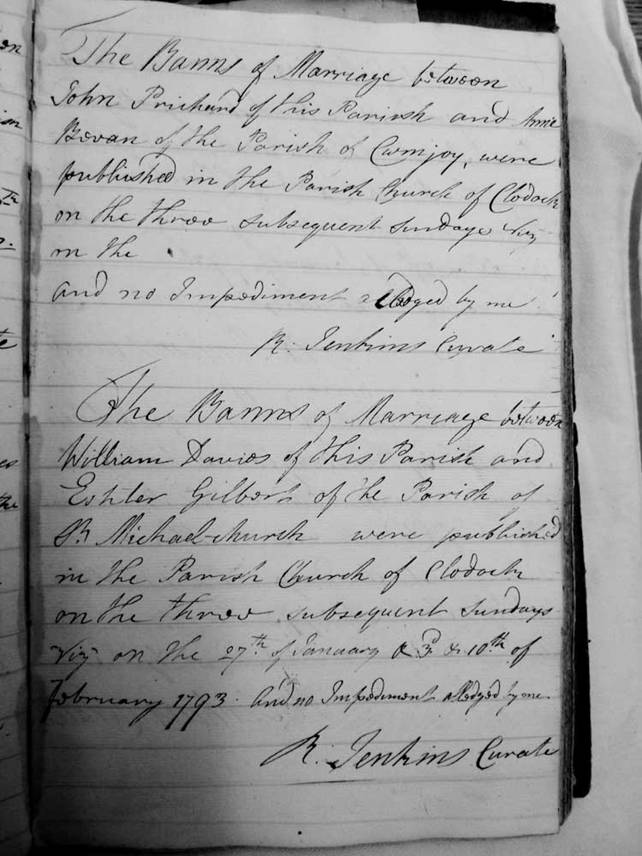 The Banns of Marriage between
John Prichard of this Parish and Anne
Bevan of the Parish of Cwmjoy, were
published in the Parish Church of Clodock
on the three subsequent Sundays viz
on the
and no Impediment alledged by me
R. Jenkins Curate
The Banns of Marriage between
William Davies of this Parish and
Eshter Gilbert of the Parish of
St Michael-church were published
in the Parish Church of Clodock
on the three subsequent Sundays
viz on the 27th of January & 3d & 10th of
February 1793. And no Impediment alledged by me
R. Jenkins Curate